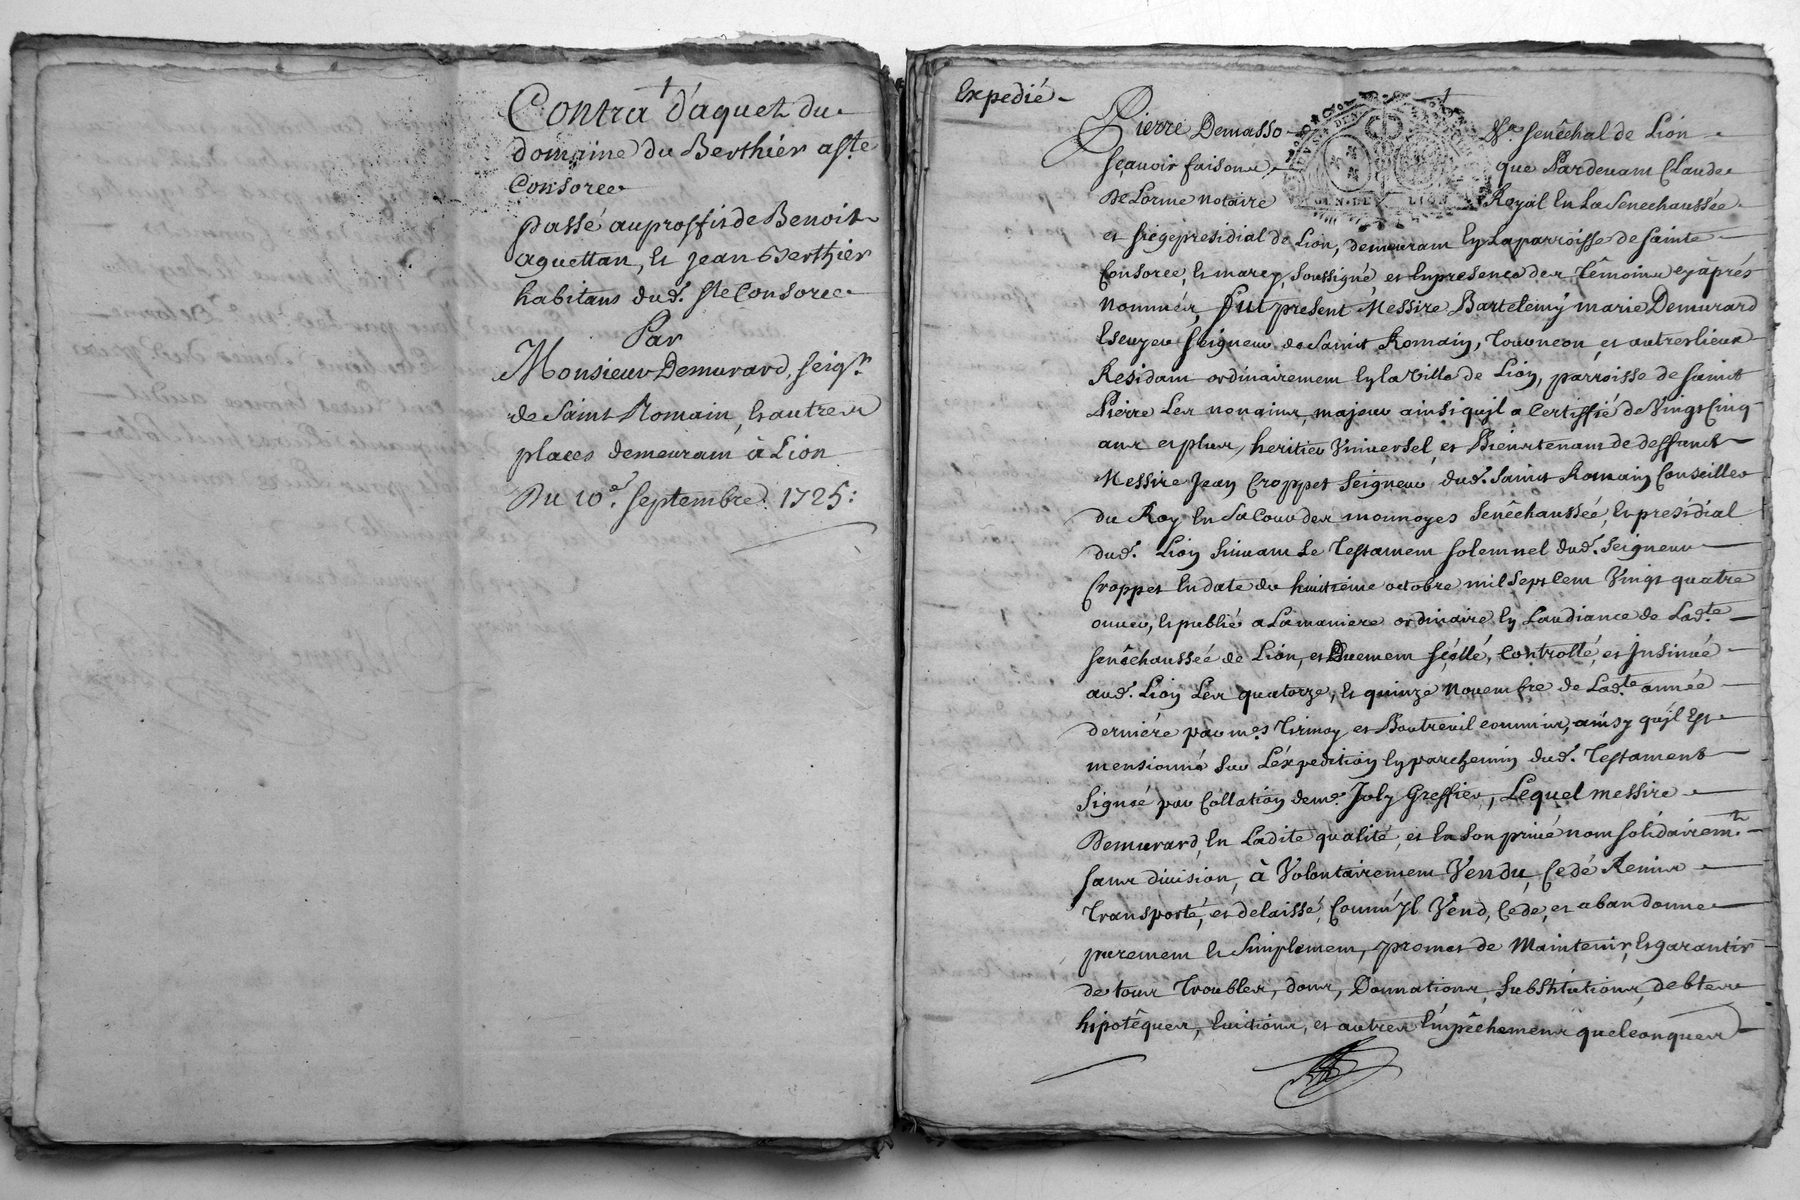 Contrat d'aquet du
domaine du Berthier a Ste
Consorce
passé au proffit de Benoit
aguettan, et Jean Berthier
habitans dud. Ste Consorce
Par
Monsieur Demurard, seigr.
de Saint Romain, et autres
places demeurant à Lion
Du 10e. Septembre 1725:
Expedié
Pierre Demasso Sr. senêchal de Lion
sçavoir faisons que Pardevant Claude
De Lorme notaire Royal en La Senechaussée
et siege presidial de Lion, demeurant en La parroisse de sainte
Consorce, et marcy, soussigné et en presence des Têmoins cy àprés
nommés, fut present Messire Bartelemÿ marie Demurard
Escuyer seigneur de Saint Romain, Tourneon, et autres lieux
Residant ordinairement en la Ville de Lion, parroisse de saint
Pierre Les nonains, majeur ainsi qu'il a Certiffié de Vingt Cinq
ans et plus, heritier Vniversel, et Bien tenant de deffunct
Messire Jean Croppet seigneur dud. Saint Romain Conseiller
du Roy En La Cour des monnoyes Senêchaussée, et presidial
dud. Lion suivant Le Testament solemnel dud. seigneur
Croppet En date du huitiéme octobre mil sept Cent Vingt quatre
ouvert, et publié a La maniere ordinaire En L'audiance de Lad.te
senêchaussée de Lion, et Duement scéllé, Controllé, et Insinué
aud. Lion Les quatorze, et quinze Novembre de Lad.te année
derniére par mes. Tirmoy et Boutreuil commis, ainsy qu'jl Est
mensionné sur L'éxpedition En parchemin dud. Testament
Signée par Collation de me. Joly Greffier, Lequel messire
Demurard, En Ladite qualité, et En son privé nom solidairemt.
sans division, à Volontairement Vendu, Cedé Remis
Transporté, et delaissé, Comm'Jl Vend, Cede, et abandonne
purement et Simplement, promet de Maintenir, et garantir
de tous Troubles, dons, Donnations, Substitutions, debtes
hipotêques, Evictions, et autres Empêchements quelconques